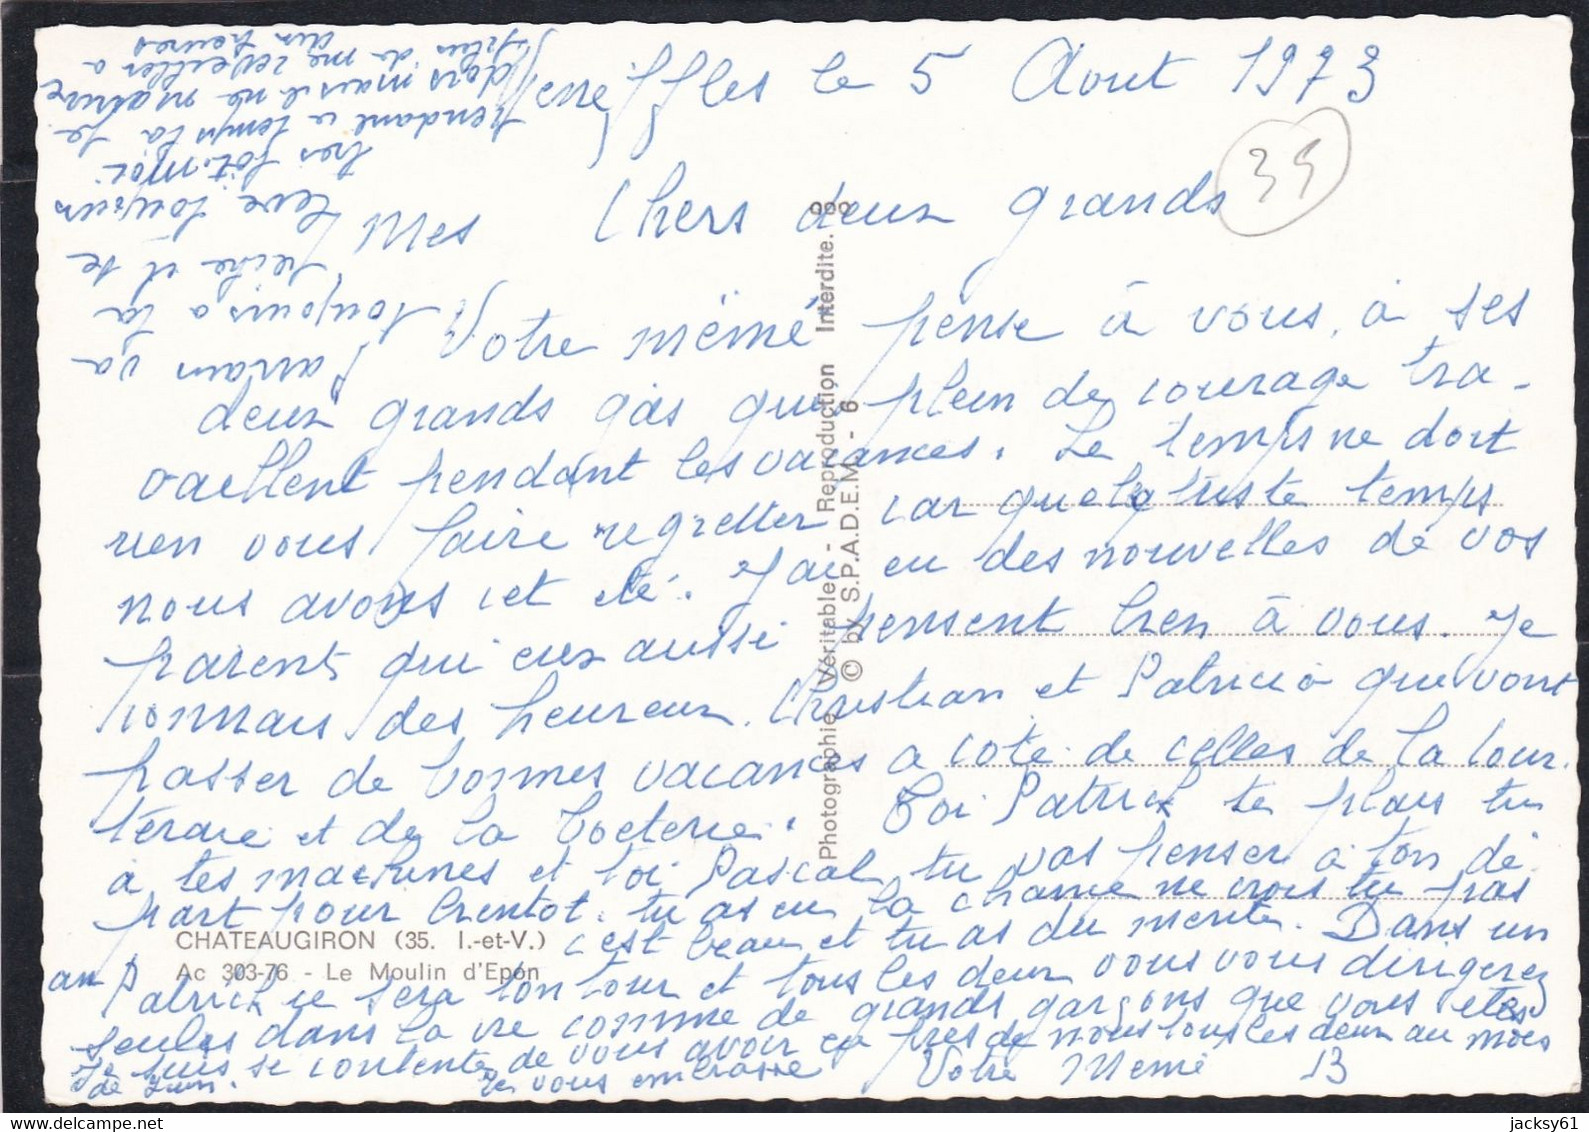 le 5 Aout 1973
35
Mes Chers deux grands
Votre mémé pense à vous, à ses
deux grands gas qui plein de courage tra-
vaillent pendant les vacances. Le temps ne doit
rien vous faire regretter car quel triste temps
nous avons cet été. J'ai eu des nouvelles de vos
parents qui eux aussi pensent bien à vous. Je
connais des heureux. Christian et Patricia que vont
passer de bonnes vacances a coté de celles de la Cour.
et de la
Toi Patrick te plais tu
à tes machines et toi Pascal tu vas penser à ton dé
part pour bientot. tu as eu la chance ne crois tu pas
c'est beau et tu as du merite. Dans un
an Patrick ce sera ton tour et tous les deux vous vous dirigerez
seules dans la vie comme de grands garçons que vous etes
Je suis si contente de vous avoir eu pres de nous tous les deux au mois
de Juin. Je vous embrasse Votre Mémé B
Parrain va
toujours a la
peche et se
leve toujours
tres tôt. moi
pendant ce temps la je
dors mais il ne
me reveiller a
heures
CHATEAUGIRON (35. I.-et-V.)
Ac 303-76 - Le Moulin d'Epon
Photographie Véritable - Reproduction Interdite.
© by S.P.A.D.E.M. - 6
jacksy61